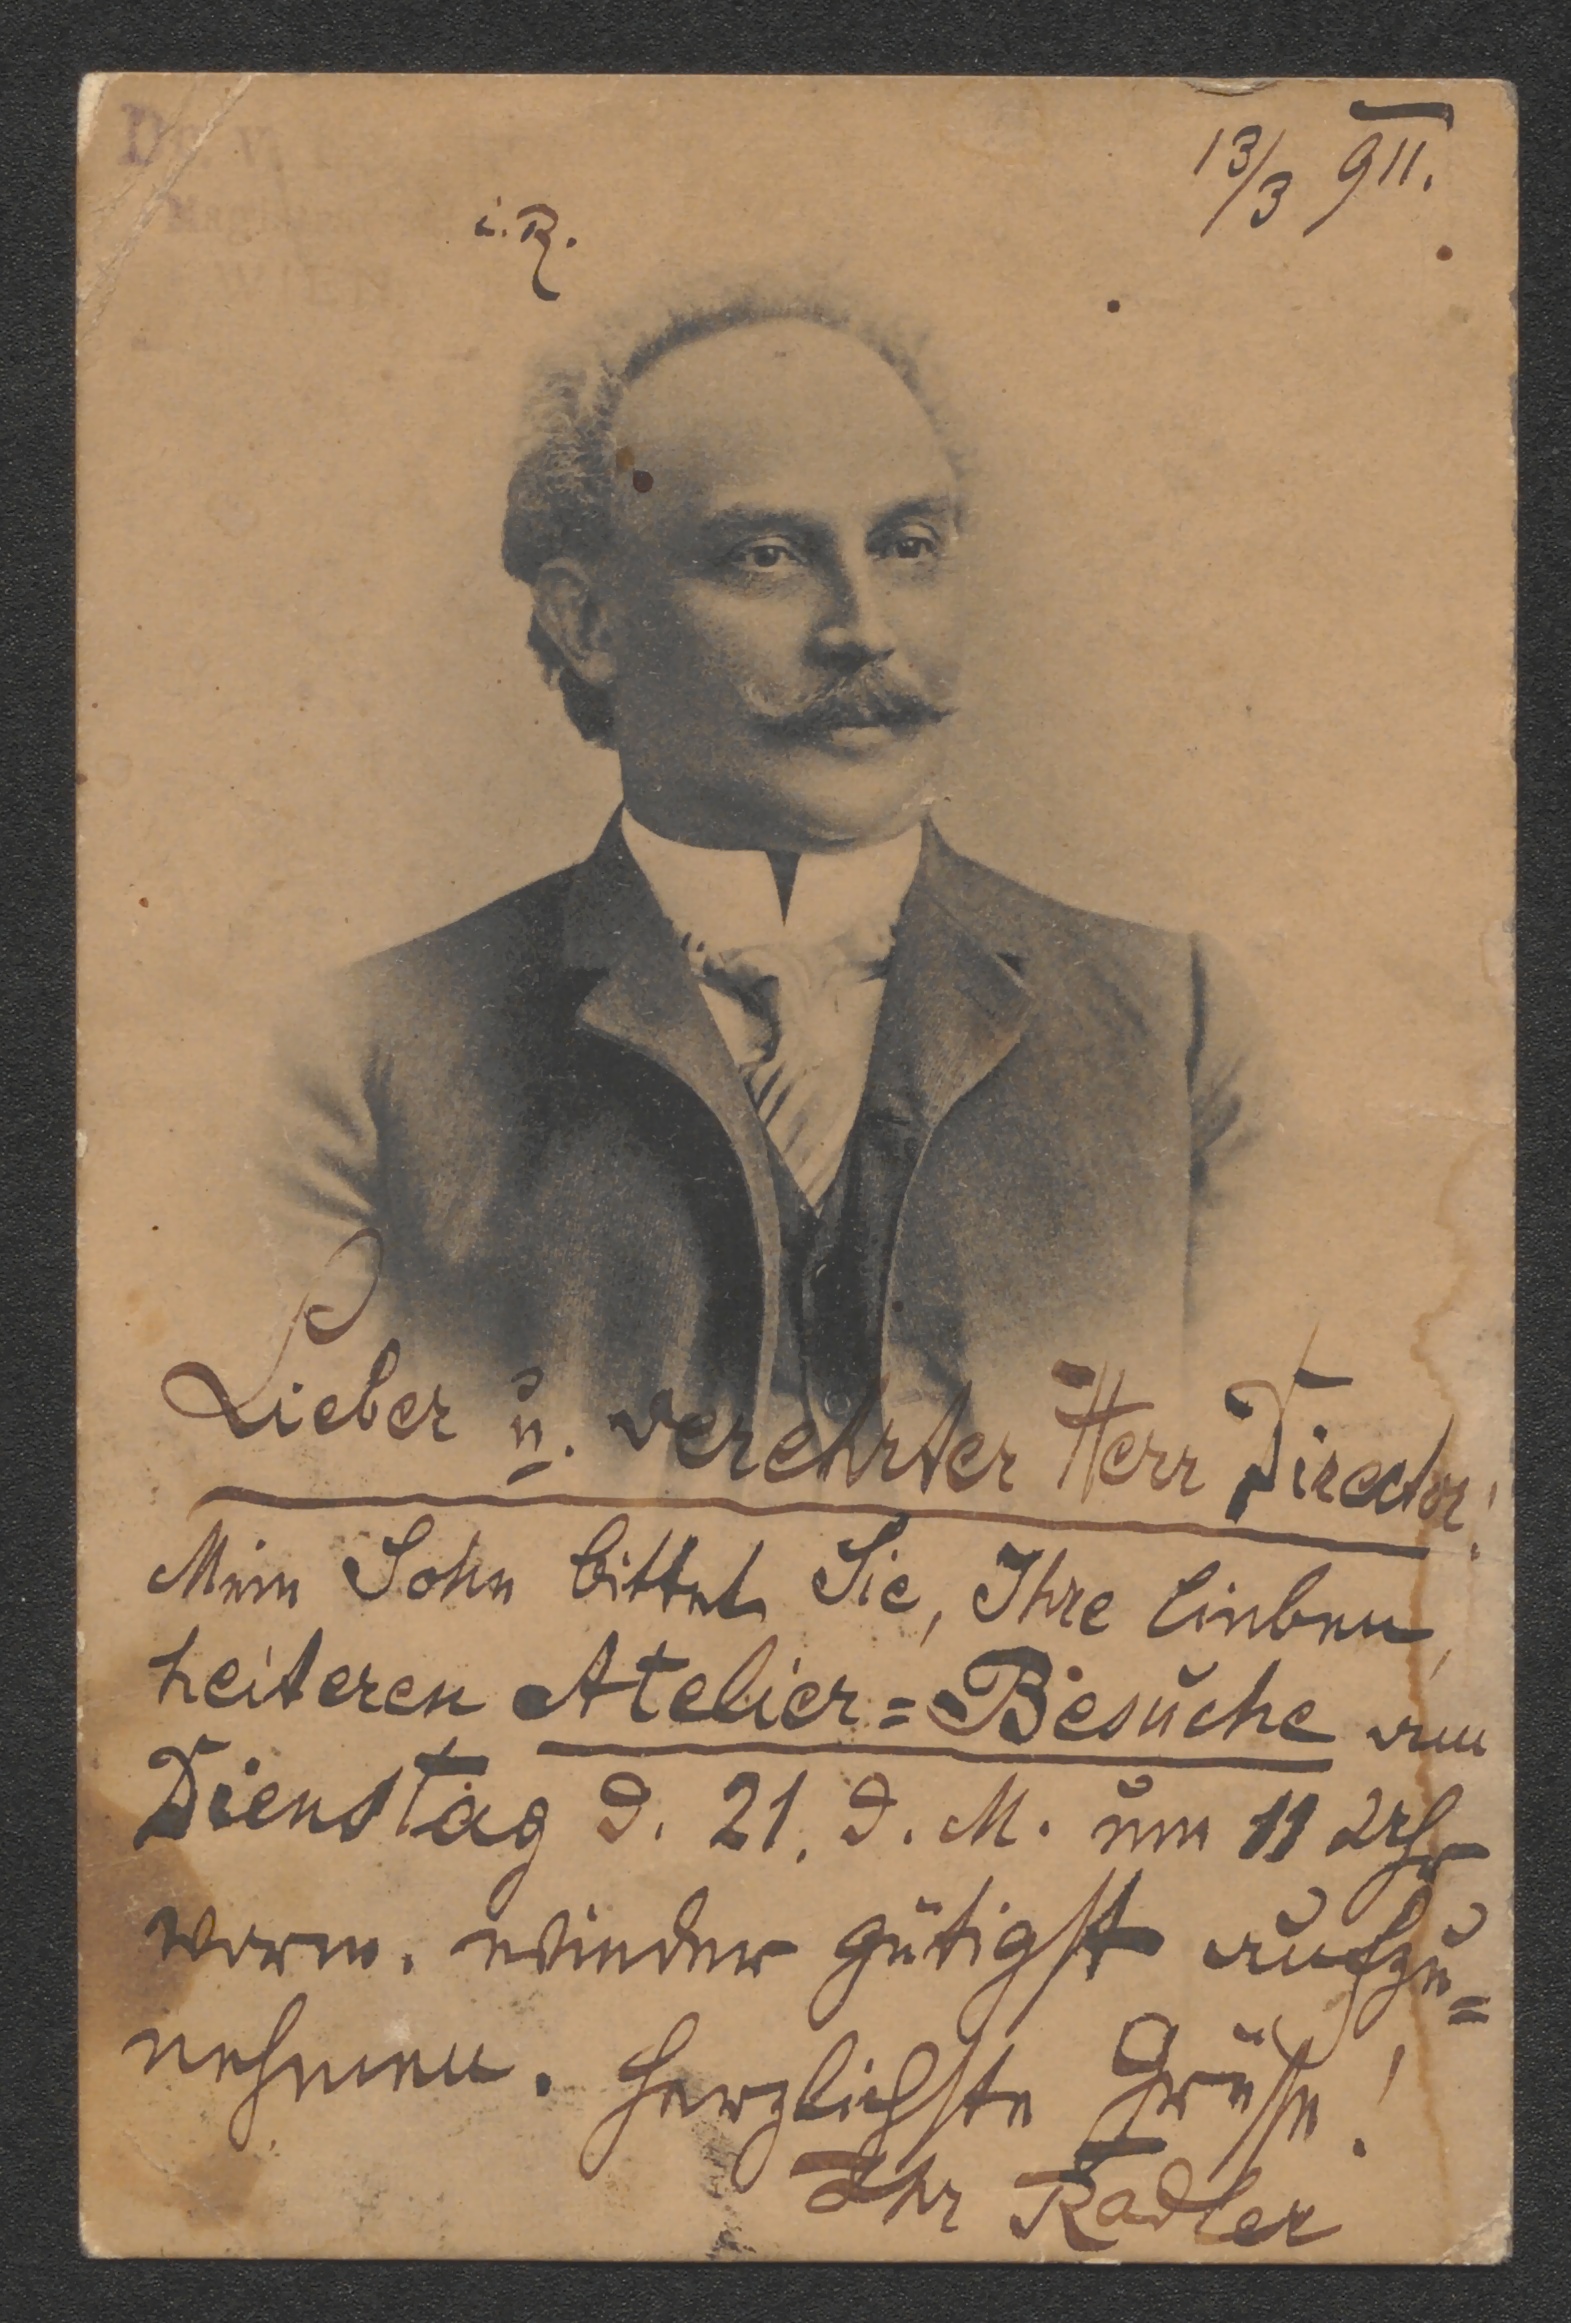 Dr. V.
WIEN
i. R.
13/3 911.
Lieber u. verehrter Herr Director!
Mein Sohn bittet Sie, Ihre lieben,
heiteren Atelier=Besuche am
Dienstag d. 21. d. M. um 11 Uhr
vorm. wieder gütigst aufzu=
nehmen. Herzlichste Grüße!
Ihr Kadler